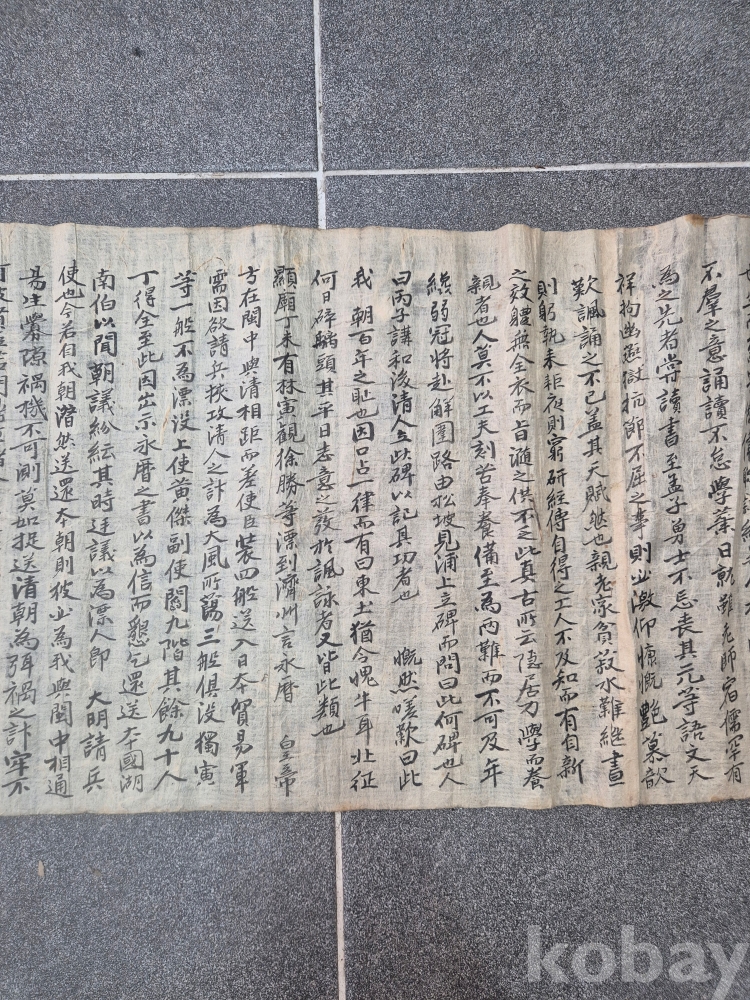 不羣之意誦讀不怠學業日就雖老師宿儒罕有
為之先者嘗讀書至孟子勇士不忘喪其元等語文天
祥拘幽燕獄抗節不屈之事則必激仰慷慨艶慕歆
歎諷誦之不已盖其天賦然也親老家貧菽水難繼晝
則躬執耒耟夜則窮研經傳自得之工人不及知而有日新
之效軆無全衣而旨瀡之供不乏此真古所云隱居力學而養
親者也人莫不以工夫刻苦奉養備至為兩難而不可及年
纔弱冠將赴觧圍路由松坡見浦上立碑而問曰此何碑也人
曰丙子講和後清人立此碑以記其功者也 慨然嗟歎曰此
我 朝百年之耻也因口占一律而有曰東土猶含愧牛耳北征
何日碎龜頭其平日志意之發於諷詠者又皆此類也
顯廟丁未有林寅觀徐勝等漂到濟州言永曆 皇帝
方在閩中與清相距而差使臣裝四船送入日本貿易軍
需因欲請兵挾攻清人之計為大風所蕩三船俱没獨寅
等一船不為漂没上使黄傑副使閻九階其餘九十人
丁得全至此因出示永曆之書以為信而懇乞還送本國湖
南伯以聞朝議紛紜其時廷議以為漂人即 大明請兵
使也今若自我朝潛然送還本朝則彼必為我與閩中相通
易生釁隙禍機不可測莫如捉送清朝為弭禍之計牢不
kobay